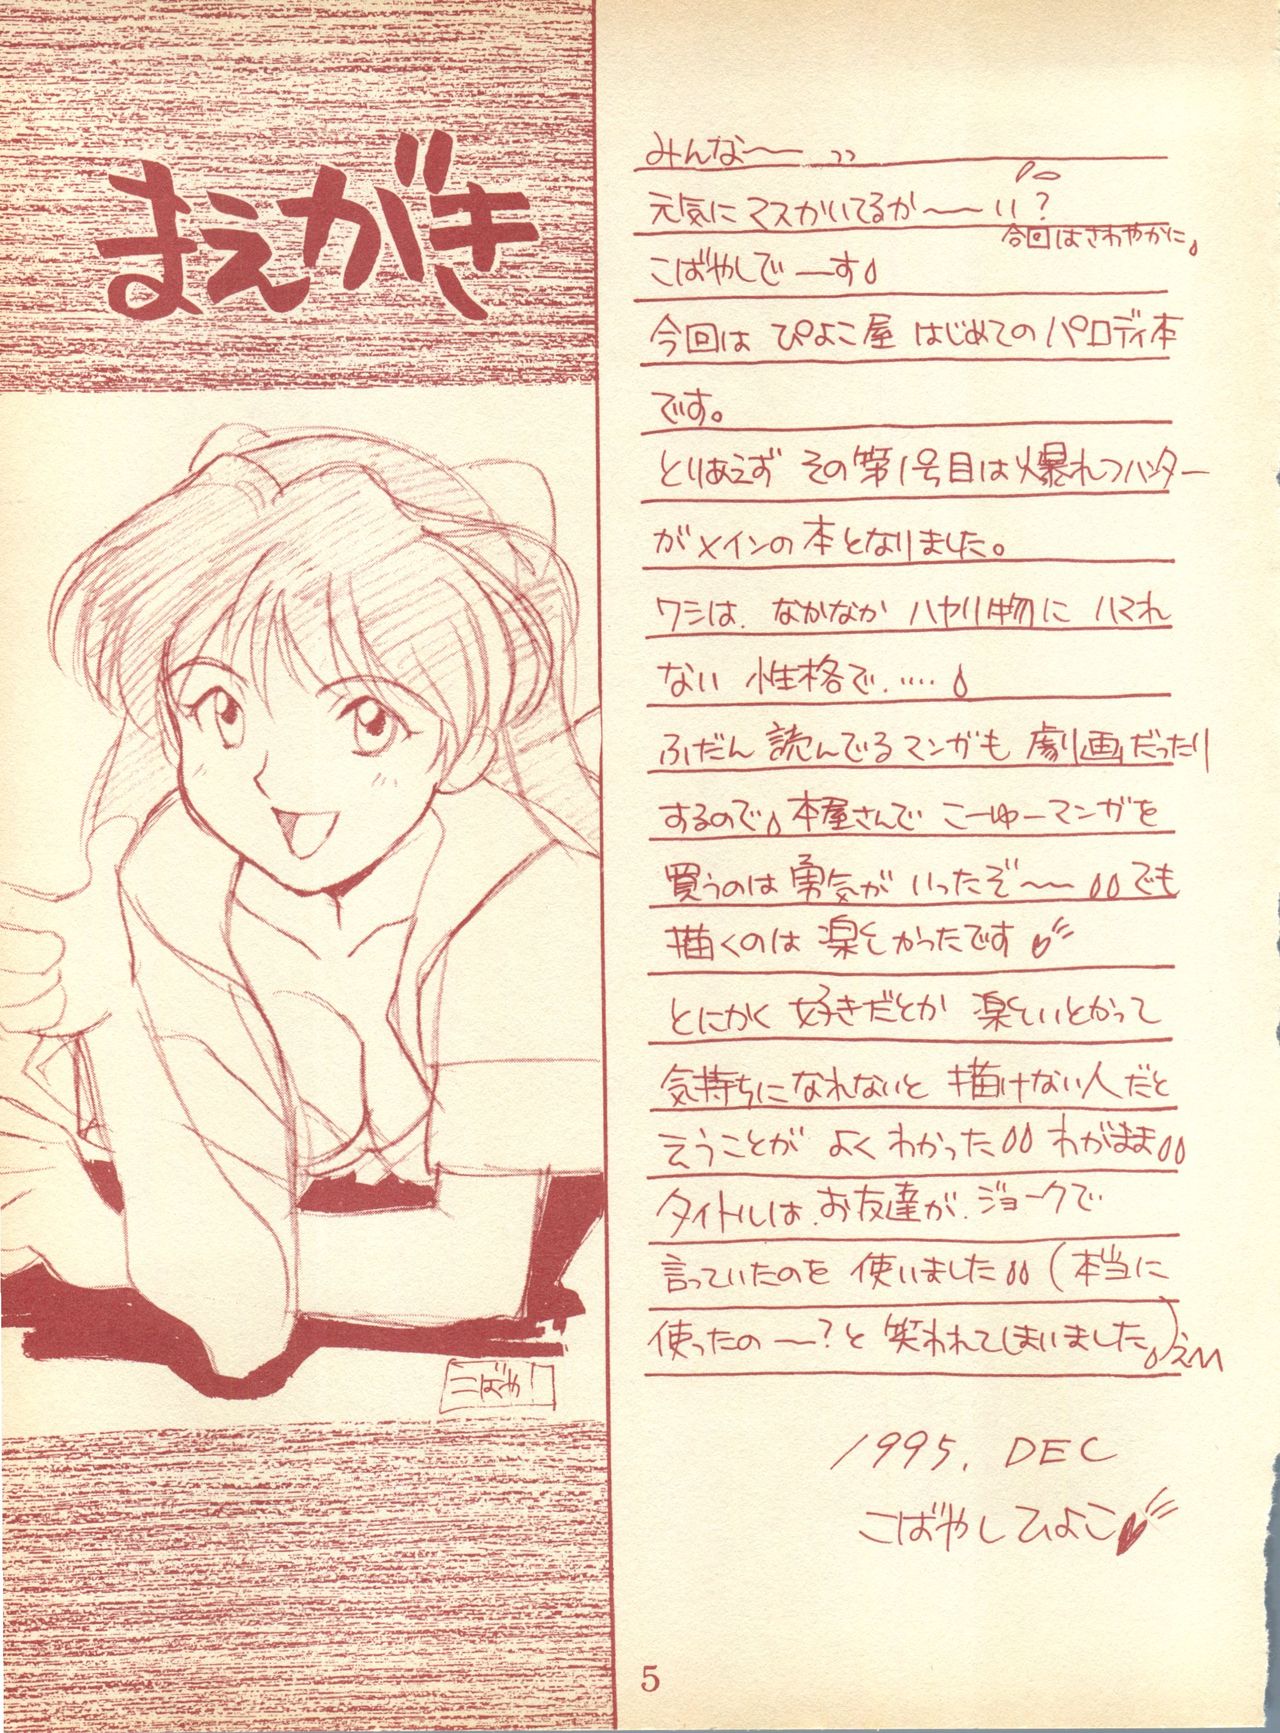 まえがき
みんな〜〜 ッッ
元気にマスかいてるか〜〜い?
今回はさわやかに。
こばやしで〜す
今回は ぴよこ屋 はじめてのパロディ本
です。
とりあえず その第1号目は爆れつハンター
がメインの本となりました。
ワシは、なかなか ハヤリ物に ハマれ
ない 性格で‥‥‥
ふだん 読んでるマンガも 劇画だったり
するので 本屋さんで こーゆーマンガを
買うのは 勇気が いったぞ〜〜 でも
描くのは 楽しかったです
とにかく 好きだとか 楽しいとかって
気持ちになれないと 描けない人だと
ゆうことが よく わかった わがまま
タイトルは、お友達が、ジョークで
言っていたのを 使いました (本当に
使ったの〜?と 笑われてしまいました)
こばや!
1995. DEC
こばやしひよこ
5